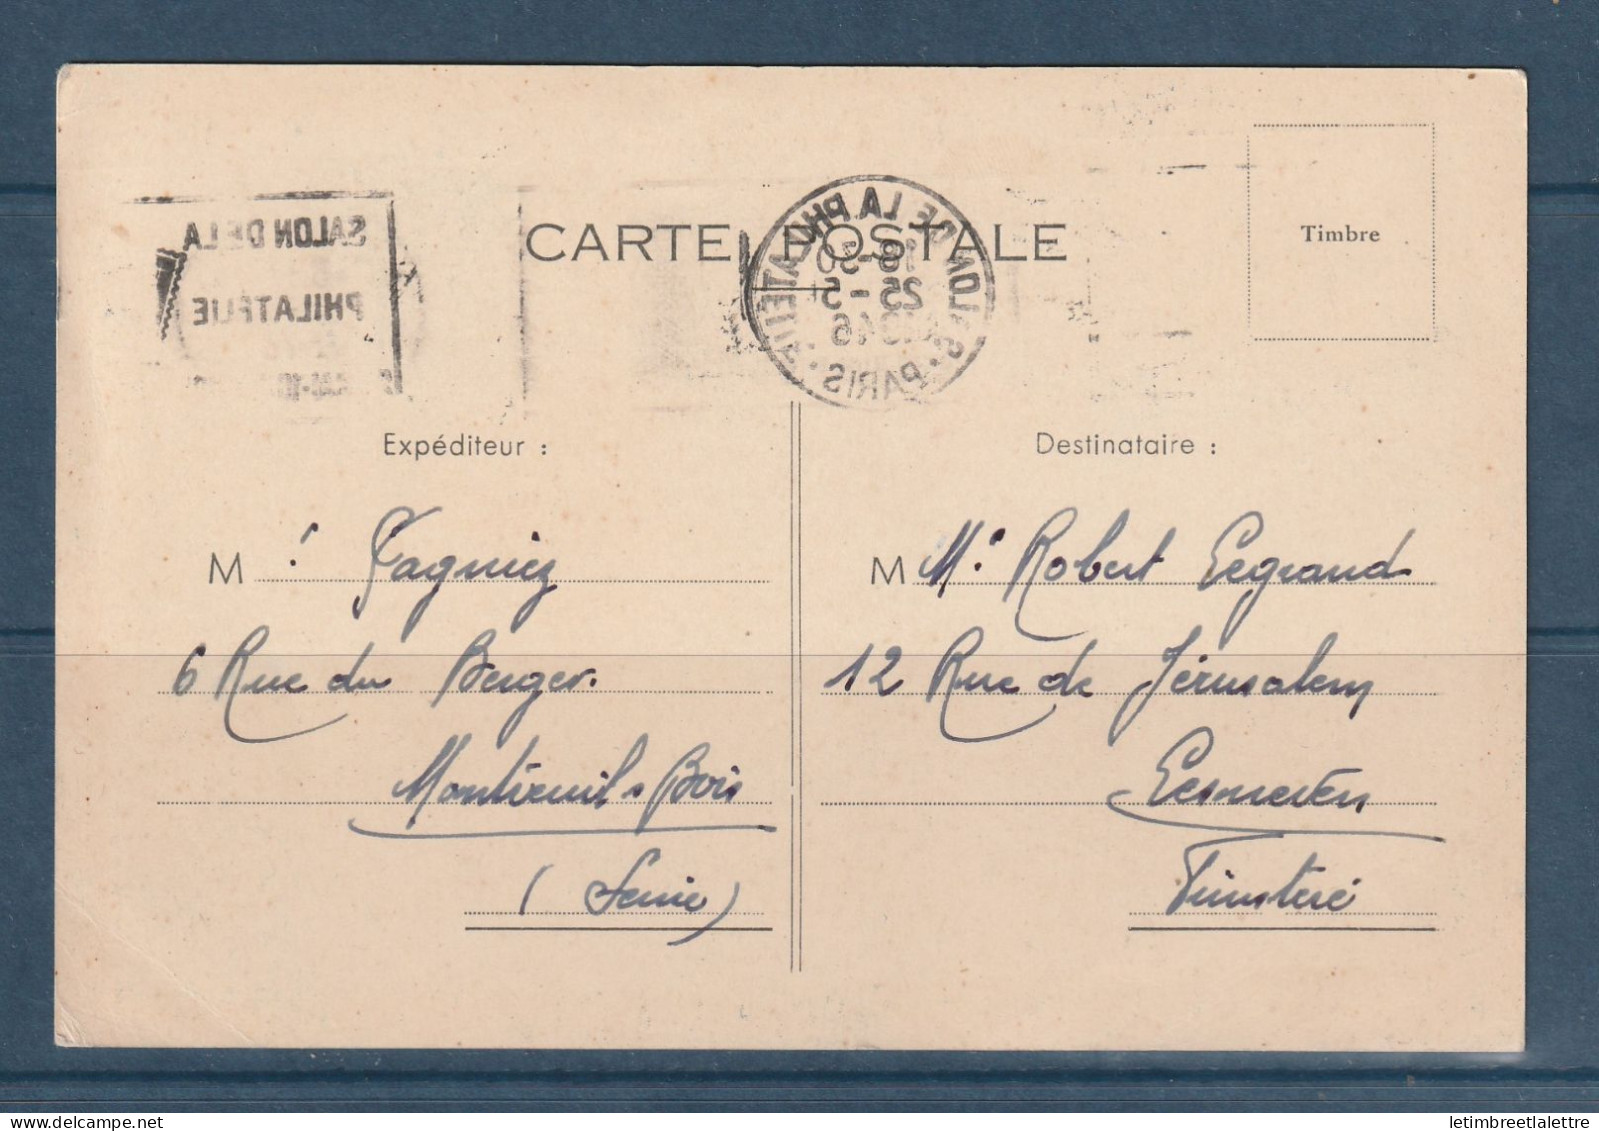 CARTE POSTALE
Timbre
SALON DE LA
PHILATELIE
SALON DE LA PHILATELIE
18-30
25-5
1946
PARIS
Expéditeur :
Destinataire :
M r Fagniez
6 Rue du Berger.
Montreuil s Bois
(Seine)
M Mr Robert Legrand
12 Rue de Jérusalem
Lesneven
Finistère
letimbreetlalettre